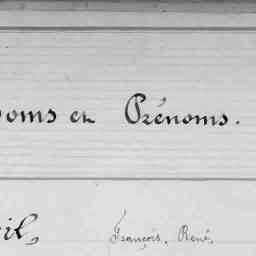 oms et Prénoms.
il, François, René